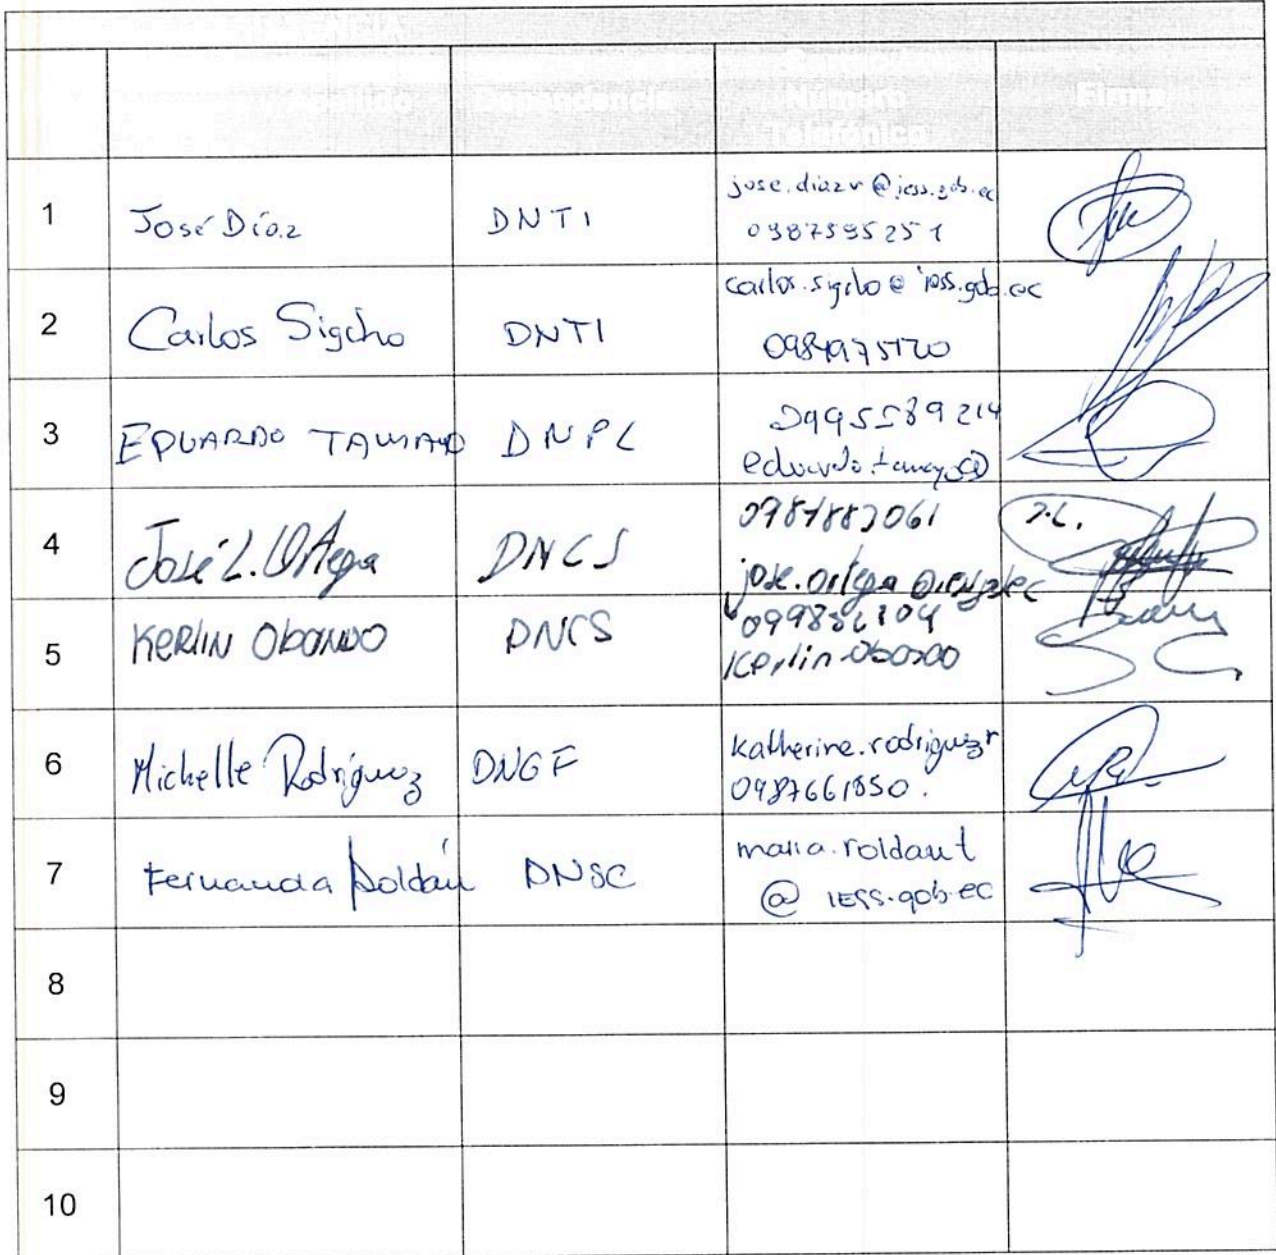 Número
Telefónico
1 José Díaz DNTI jose.diazv@iess.gob.ec
0987595251
2 Carlos Sigcho DNTI carlos.sigcho@iess.gob.ec
3 EDUARDO TAMAYO DNPL 0995589214
eduardo.tamayo@
4 José L. Ortega DNCS
jose.ortega
5 KERLIN OBANDO DNCS
Kerlin.obando
6 Michelle Rodríguez DNGF katherine.rodriguezr
0987661850.
7 Fernanda Roldán DNSC maria.roldant
@ iess.gob.ec
8
9
10